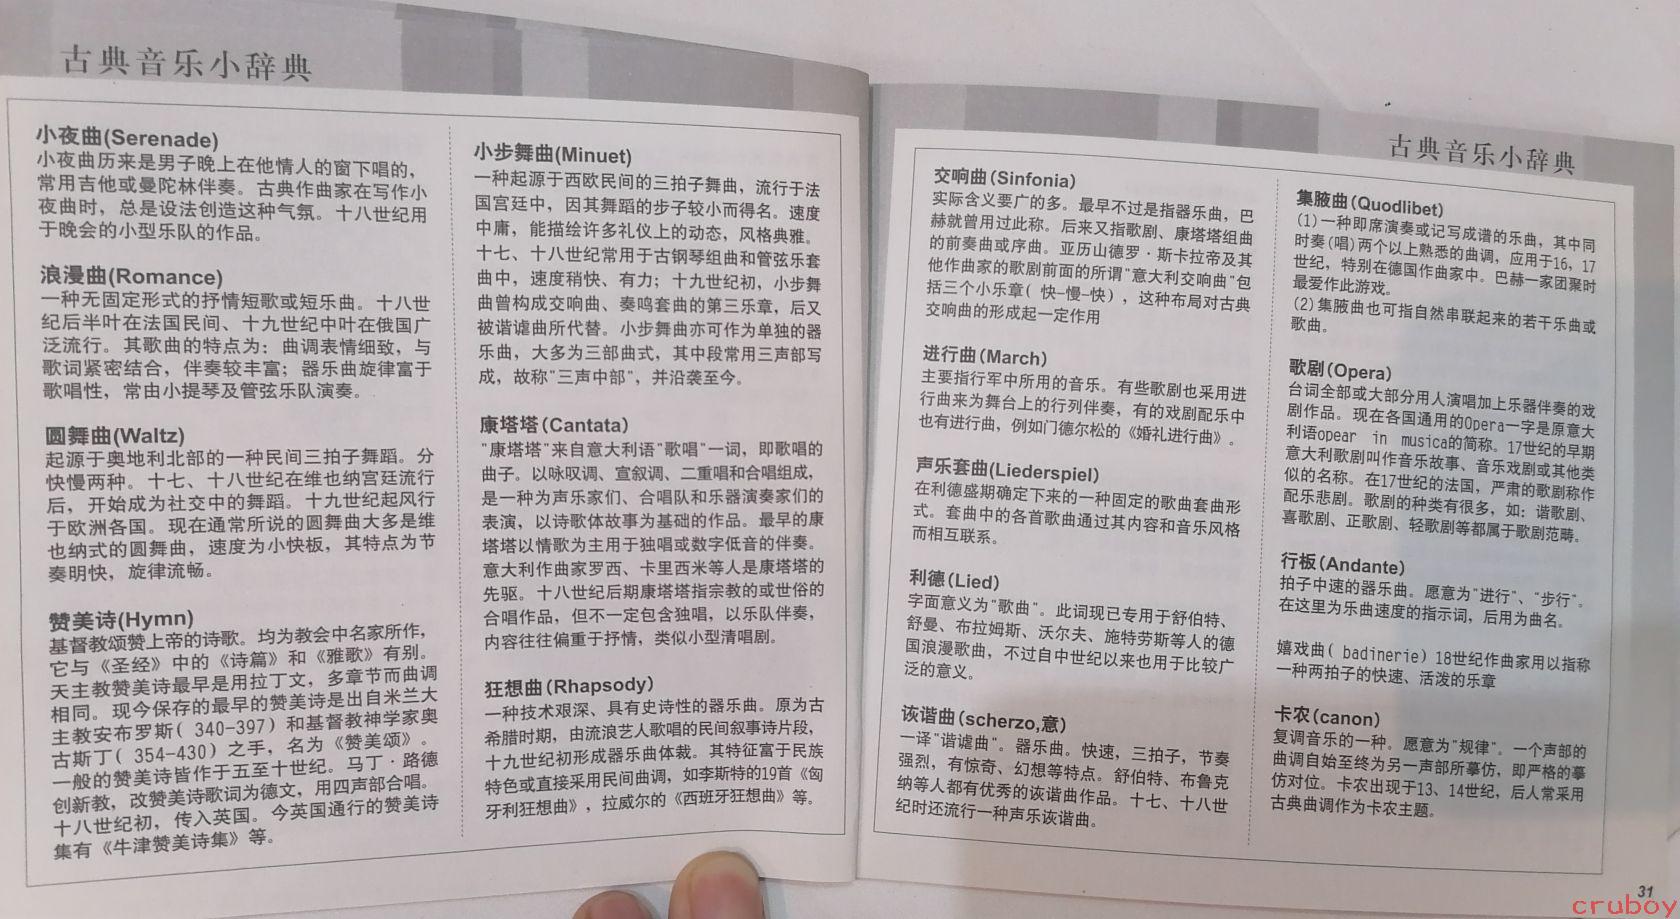 古典音乐小辞典
小夜曲(Serenade)
小夜曲历来是男子晚上在他情人的窗下唱的，
常用吉他或曼陀林伴奏。古典作曲家在写作小
夜曲时，总是设法创造这种气氛。十八世纪用
于晚会的小型乐队的作品。
浪漫曲(Romance)
一种无固定形式的抒情短歌或短乐曲。十八世
纪后半叶在法国民间、十九世纪中叶在俄国广
泛流行。其歌曲的特点为：曲调表情细致，与
歌词紧密结合，伴奏较丰富；器乐曲旋律富于
歌唱性，常由小提琴及管弦乐队演奏。
圆舞曲(Waltz)
起源于奥地利北部的一种民间三拍子舞蹈。分
快慢两种。十七、十八世纪在维也纳宫廷流行
后，开始成为社交中的舞蹈。十九世纪起风行
于欧洲各国。现在通常所说的圆舞曲大多是维
也纳式的圆舞曲，速度为小快板，其特点为节
奏明快，旋律流畅。
赞美诗(Hymn)
基督教颂赞上帝的诗歌。均为教会中名家所作，
它与《圣经》中的《诗篇》和《雅歌》有别。
天主教赞美诗最早是用拉丁文，多章节而曲调
相同。现今保存的最早的赞美诗是出自米兰大
主教安布罗斯( 340-397) 和基督教神学家奥
古斯丁( 354-430) 之手，名为《赞美颂》。
一般的赞美诗皆作于五至十世纪。马丁·路德
创新教，改赞美诗歌词为德文，用四声部合唱。
十八世纪初，传入英国。今英国通行的赞美诗
集有《牛津赞美诗集》等。
小步舞曲(Minuet)
一种起源于西欧民间的三拍子舞曲，流行于法
国宫廷中，因其舞蹈的步子较小而得名。速度
中庸，能描绘许多礼仪上的动态，风格典雅。
十七、十八世纪常用于古钢琴组曲和管弦乐套
曲中，速度稍快、有力；十九世纪初，小步舞
曲曾构成交响曲、奏鸣套曲的第三乐章，后又
被谐谑曲所代替。小步舞曲亦可作为单独的器
乐曲，大多为三部曲式，其中段常用三声部写
成，故称"三声中部"，并沿袭至今。
康塔塔(Cantata)
"康塔塔"来自意大利语"歌唱"一词，即歌唱的
曲子。以咏叹调、宣叙调、二重唱和合唱组成，
是一种为声乐家们、合唱队和乐器演奏家们的
表演，以诗歌体故事为基础的作品。最早的康
塔塔以情歌为主用于独唱或数字低音的伴奏。
意大利作曲家罗西、卡里西米等人是康塔塔的
先驱。十八世纪后期康塔塔指宗教的或世俗的
合唱作品，但不一定包含独唱，以乐队伴奏，
内容往往偏重于抒情，类似小型清唱剧。
狂想曲(Rhapsody)
一种技术艰深、具有史诗性的器乐曲。原为古
希腊时期，由流浪艺人歌唱的民间叙事诗片段，
十九世纪初形成器乐曲体裁。其特征富于民族
特色或直接采用民间曲调，如李斯特的19首《匈
牙利狂想曲》，拉威尔的《西班牙狂想曲》等。
古典音乐小辞典
交响曲(Sinfonia)
实际含义要广的多。最早不过是指器乐曲，巴
赫就曾用过此称。后来又指歌剧、康塔塔组曲
的前奏曲或序曲。亚历山德罗·斯卡拉帝及其
他作曲家的歌剧前面的所谓"意大利交响曲"包
括三个小乐章( 快-慢-快)，这种布局对古典
交响曲的形成起一定作用
进行曲(March)
主要指行军中所用的音乐。有些歌剧也采用进
行曲来为舞台上的行列伴奏，有的戏剧配乐中
也有进行曲，例如门德尔松的《婚礼进行曲》。
声乐套曲(Liederspiel)
在利德盛期确定下来的一种固定的歌曲套曲形
式。套曲中的各首歌曲通过其内容和音乐风格
而相互联系。
利德(Lied)
字面意义为"歌曲"。此词现已专用于舒伯特、
舒曼、布拉姆斯、沃尔夫、施特劳斯等人的德
国浪漫歌曲，不过自中世纪以来也用于比较广
泛的意义。
诙谐曲(scherzo,意)
一译"谐谑曲"。器乐曲。快速，三拍子，节奏
强烈，有惊奇、幻想等特点。舒伯特、布鲁克
纳等人都有优秀的诙谐曲作品。十七、十八世
纪时还流行一种声乐诙谐曲。
集腋曲(Quodlibet)
(1)一种即席演奏或记写成谱的乐曲，其中同
时奏(唱)两个以上熟悉的曲调，应用于16，17
世纪，特别在德国作曲家中。巴赫一家团聚时
最爱作此游戏。
(2)集腋曲也可指自然串联起来的若干乐曲或
歌曲。
歌剧(Opera)
台词全部或大部分用人演唱加上乐器伴奏的戏
剧作品。现在各国通用的Opera一字是原意大
利语opear in musica的简称。17世纪的早期
意大利歌剧叫作音乐故事、音乐戏剧或其他类
似的名称。在17世纪的法国，严肃的歌剧称作
配乐悲剧。歌剧的种类有很多，如：谐歌剧、
喜歌剧、正歌剧、轻歌剧等都属于歌剧范畴。
行板(Andante)
拍子中速的器乐曲。愿意为"进行"、"步行"。
在这里为乐曲速度的指示词，后用为曲名。
嬉戏曲( badinerie) 18世纪作曲家用以指称
一种两拍子的快速、活泼的乐章
卡农(canon)
复调音乐的一种。愿意为"规律"。一个声部的
曲调自始至终为另一声部所摹仿，即严格的摹
仿对位。卡农出现于13、14世纪，后人常采用
古典曲调作为卡农主题。
31
cruboy